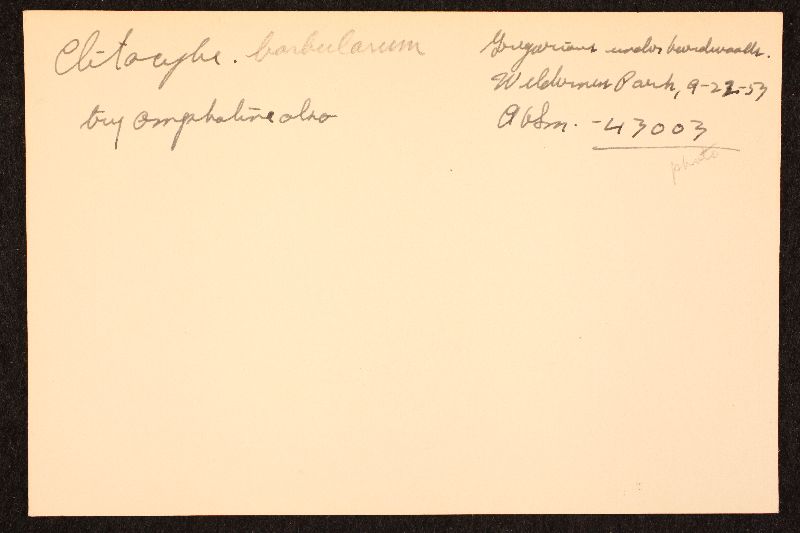 Clitocybe. barbularum
try omphaline also
Gregarious under hardwoods.
Wilderness Park, 9-22-53
AHSm. - 43003
photo